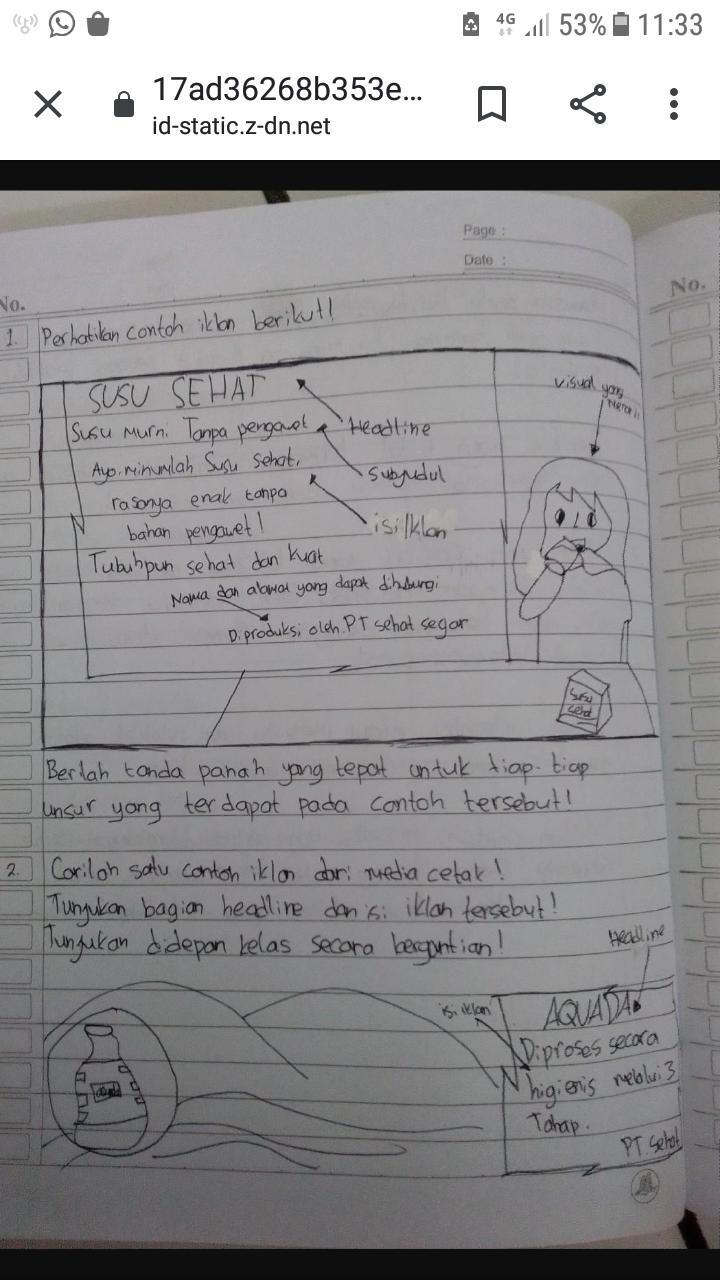 4G 53% 11:33
17ad36268b353e...
id-static.z-dn.net
Page :
Date :
No.
No.
1. Perhatikan contoh iklan berikut!
SUSU SEHAT
visual yang
Menarik
Susu Murni Tanpa pengawet
Headline
Ayo.minumlah Susu sehat,
Subjudul
rasanya enak tanpa
bahan pengawet!
isi Iklan
Tubuhpun sehat dan kuat
Nama dan alamat yang dapat dihubungi
Diproduksi oleh.PT sehat segar
Susu
sehat
Berilah tanda panah yang tepat untuk tiap-tiap
unsur yang terdapat pada contoh tersebut!
2. Carilah satu contoh iklan dari media cetak!
Tunjukan bagian headline dan isi iklan tersebut!
Tunjukan didepan kelas secara bergantian!
Headline
isi iklan
AQUADA
Diproses secara
higienis melalui 3
Tahap.
PT. Sehat